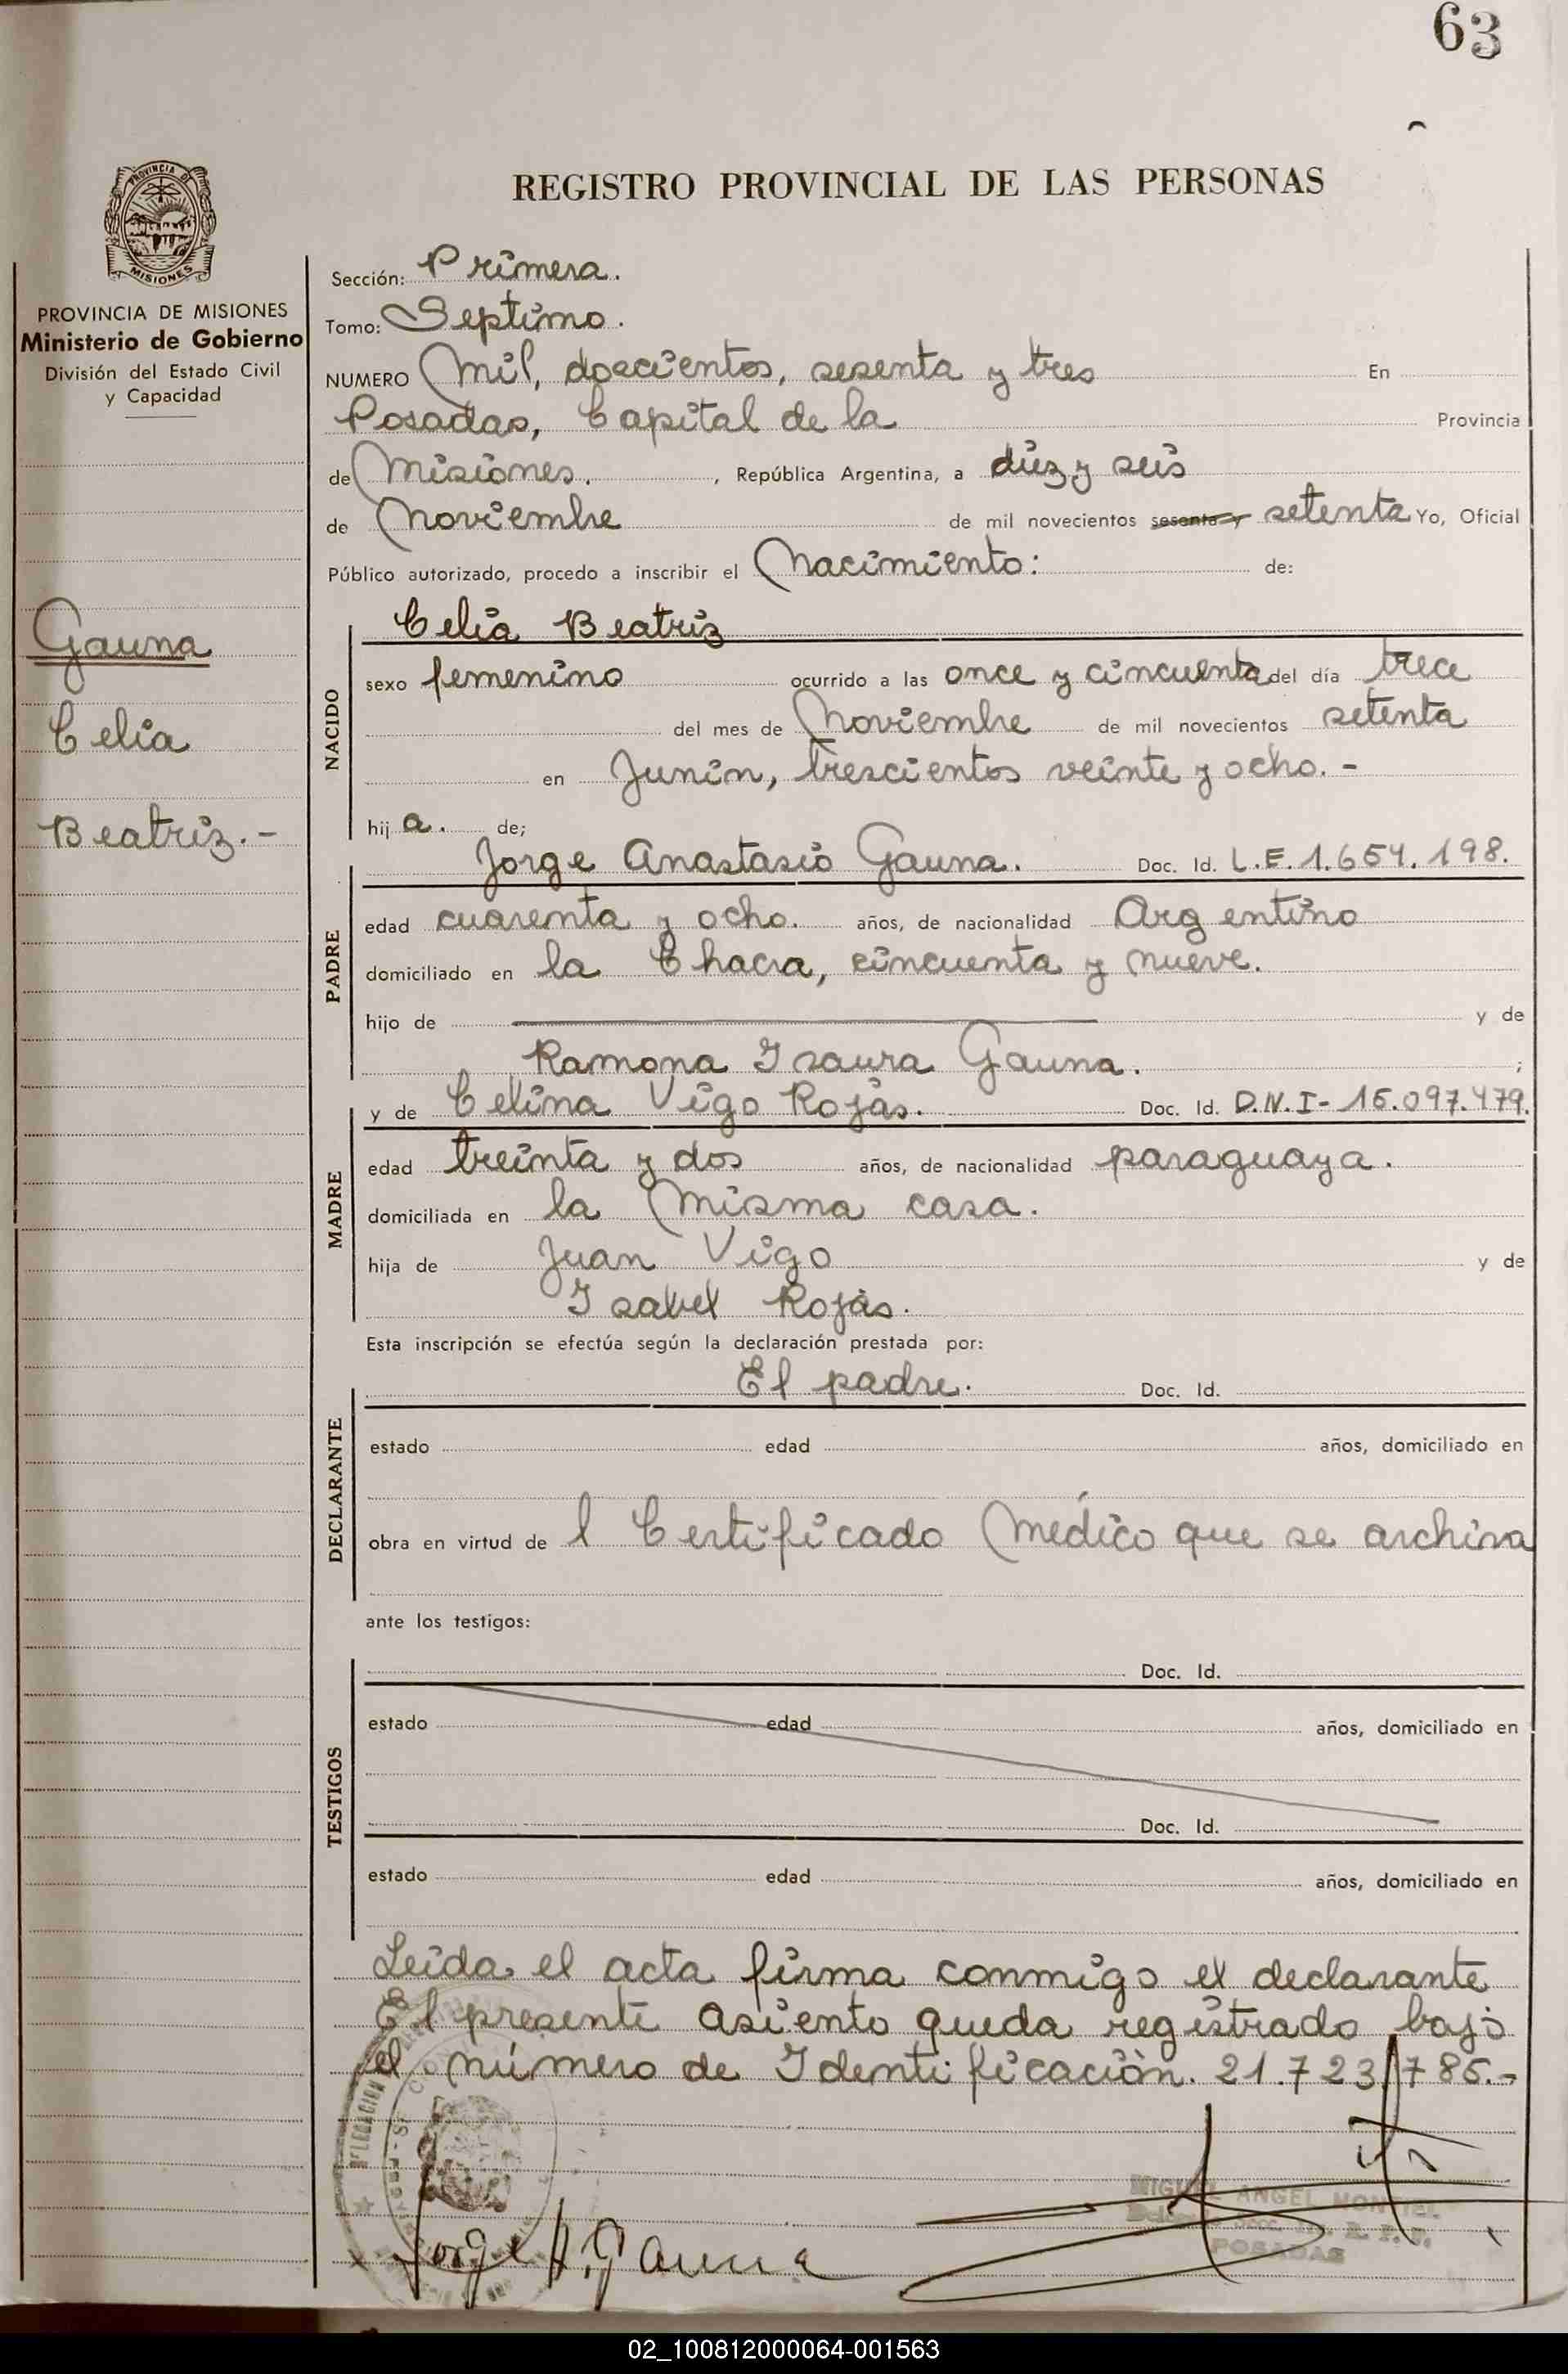 63
REGISTRO PROVINCIAL DE LAS PERSONAS
PROVINCIA DE
MISIONES
PROVINCIA DE MISIONES
Ministerio de Gobierno
División del Estado Civil
y Capacidad
Gauna
Celia
Beatriz.-
Sección: Primera.
Tomo: Septimo.
NUMERO Mil, doscientos, sesenta y tres En
Posadas, Capital de la Provincia
de Misiones. , República Argentina, a diez y seis
de Noviembre de mil novecientos sesenta y setenta Yo, Oficial
Público autorizado, procedo a inscribir el Nacimiento: de:
Celia Beatriz
NACIDO
sexo femenino ocurrido a las once y cincuenta del día trece
del mes de Noviembre de mil novecientos setenta
en Junin, trescientos veinte y ocho.-
hij a. de;
Jorge Anastasio Gauna. Doc. Id. L.E. 1.654.198.
PADRE
edad cuarenta y ocho. años, de nacionalidad Argentino
domiciliado en la Chacra, cincuenta y nueve.
hijo de y de
Ramona Isaura Gauna. ;
y de Celina Vigo Rojas. Doc. Id. D.N.I- 15.097.479.
MADRE
edad treinta y dos años, de nacionalidad paraguaya.
domiciliada en la Misma casa.
hija de Juan Vigo y de
Isabel Rojas.
Esta inscripción se efectúa según la declaración prestada por:
El padre. Doc. Id.
DECLARANTE
estado edad años, domiciliado en
obra en virtud de l Certificado Médico que se archiva
ante los testigos:
Doc. Id.
TESTIGOS
estado edad años, domiciliado en
Doc. Id.
estado edad años, domiciliado en
Leida el acta firma conmigo el declarante
El presente asiento queda registrado bajo
el número de Identificación. 21.723.785.-
DELEGACION
MIGUEL ANGEL MONTIEL
POSADAS
Jorge A. Gauna
02_100812000064-001563